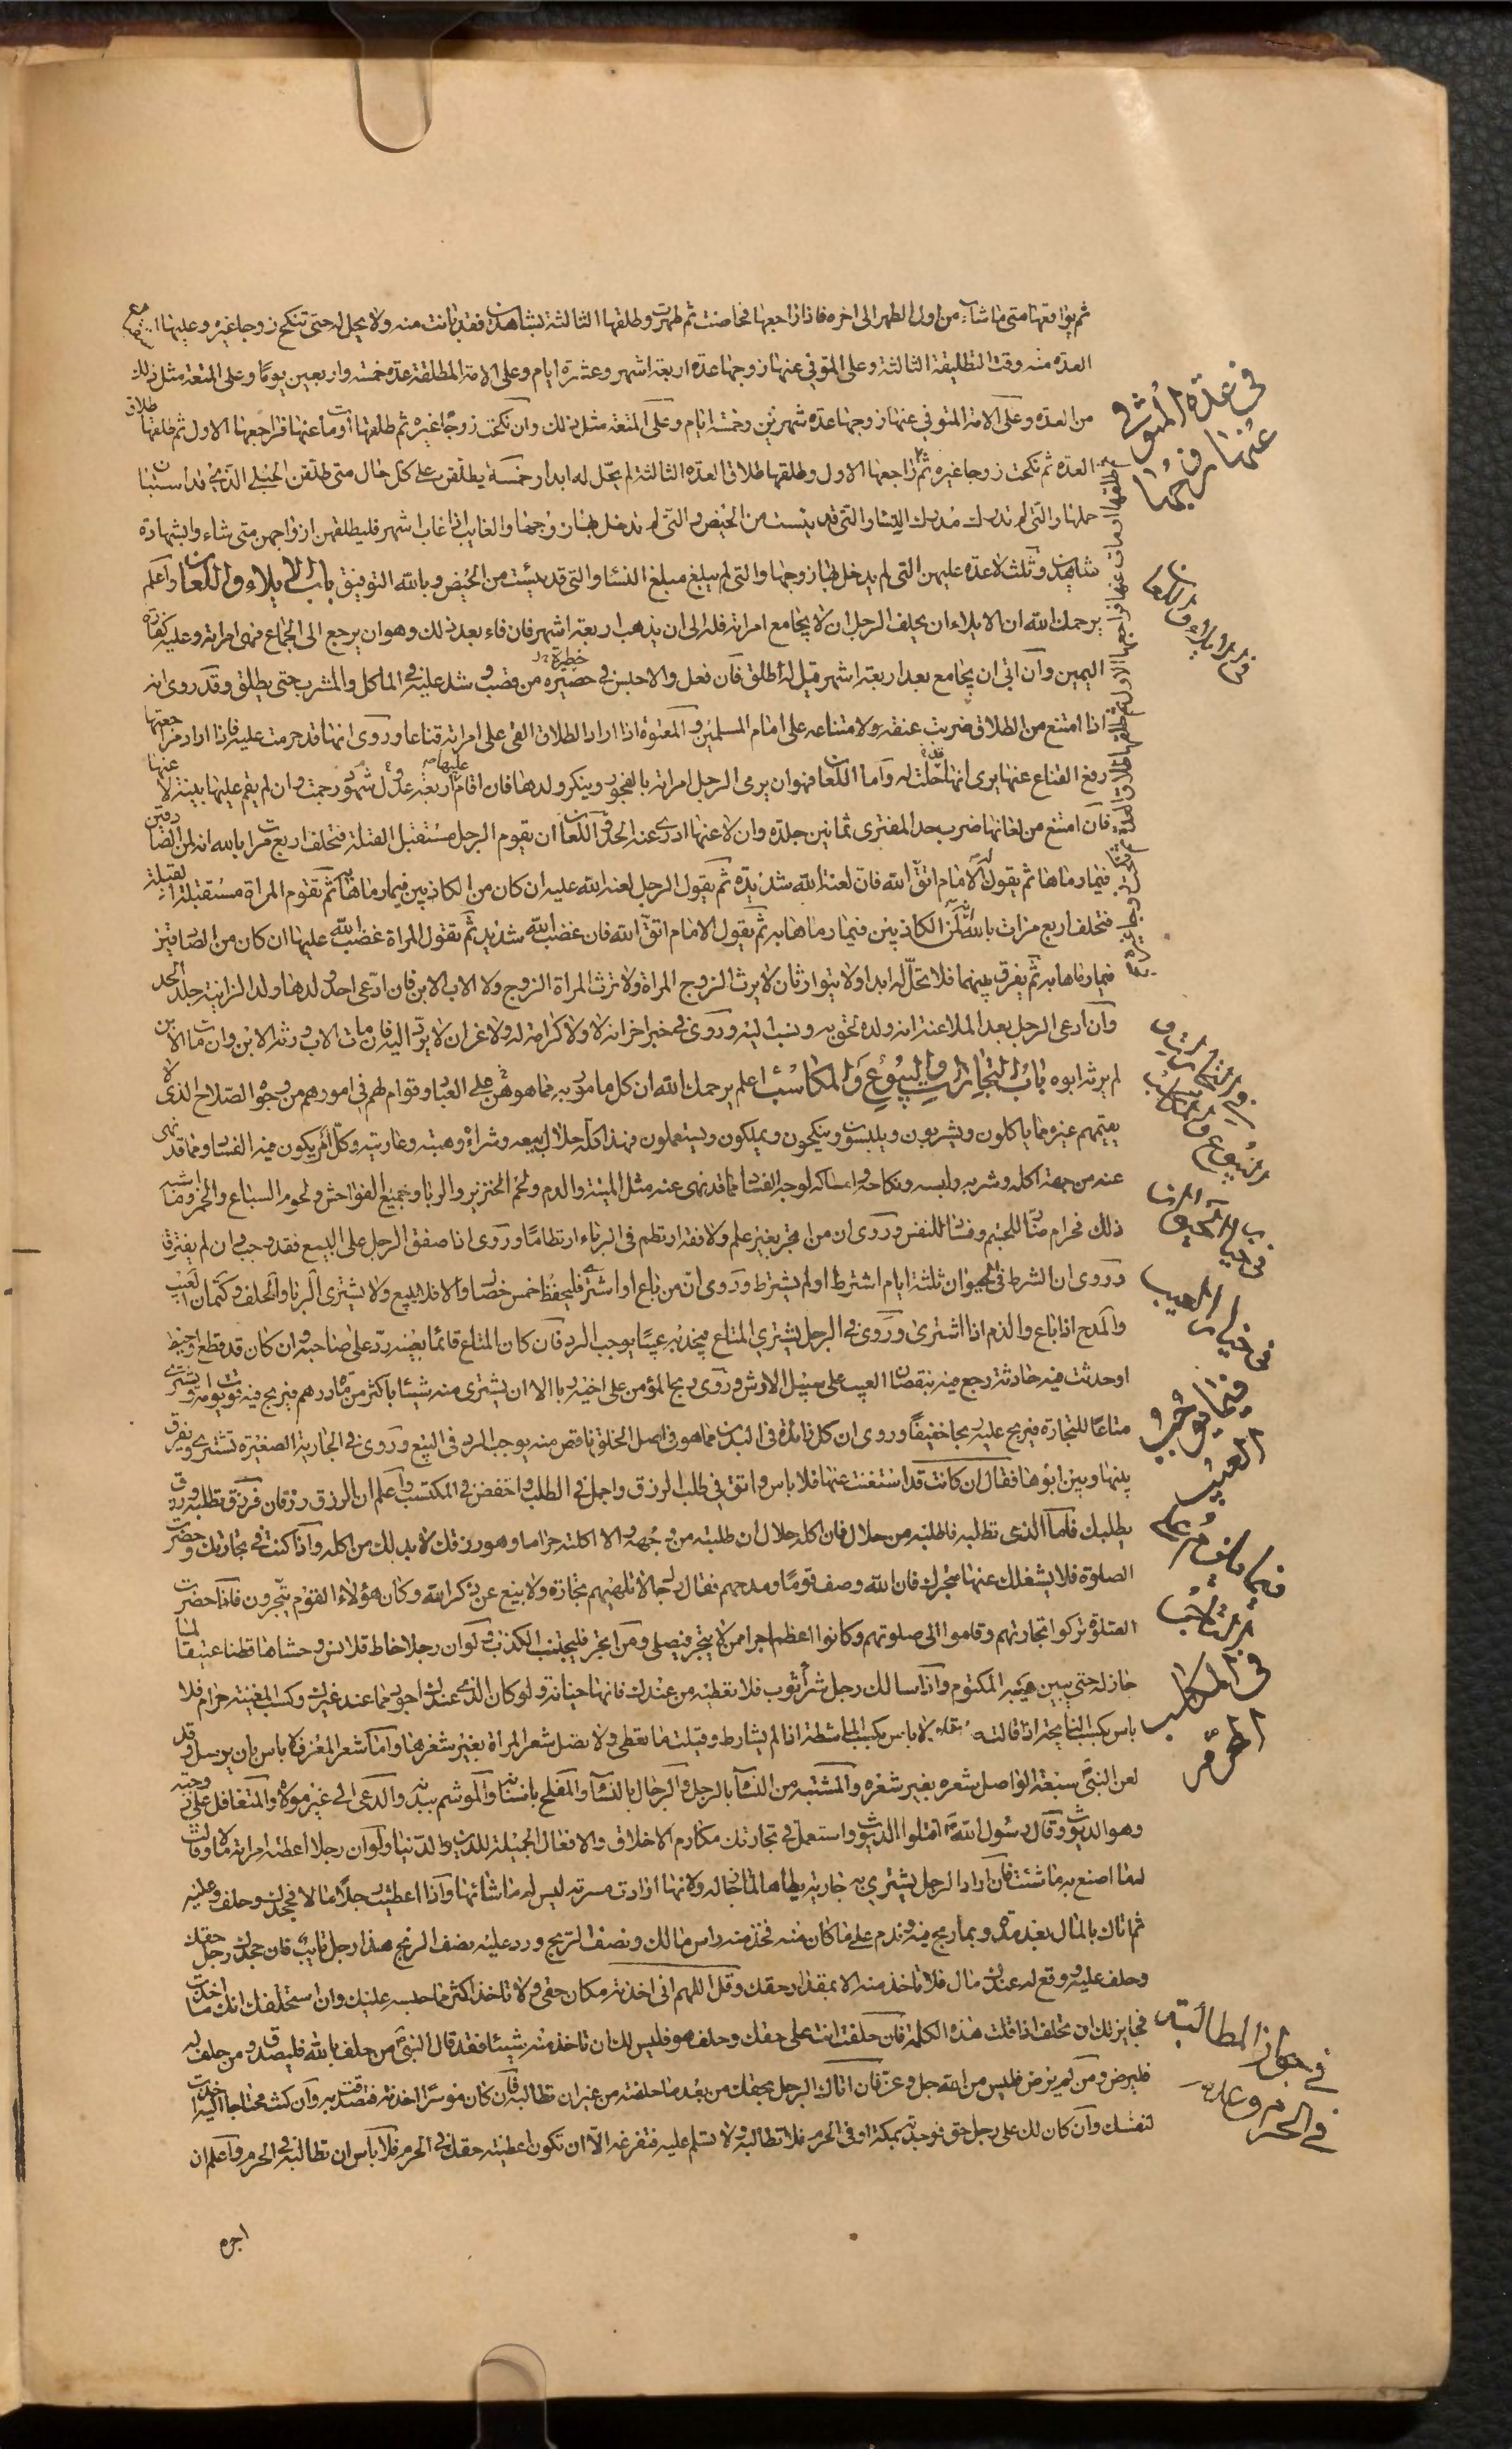 ثم يواقعها متى ما شاء من اول الطهر الى اخره فاذا راجعها فحاضت ثم طهرت وطلقها الثالثة بشاهدين فقد بانت منه ولا يحل له حتى تنكح زوجا غيره وعليها
العده منه وقت التطليقة الثالثة وعلى المتوفي عنها زوجها عدة اربعة اشهر وعشرة ايام وعلى الامة المطلقة عدة خمسة واربعين يوما وعلى المتعة مثل ذلك
من العده وعلى الامة المتوفي عنها زوجها عدة شهرين وخمسة ايام وعلى المتعة مثل ذلك وان نكحت زوجا غيره ثم طلقها أو مات عنها فراجعها الاول ثم طلقها طلاق
العدة ثم نكحت زوجا غيره ثم راجعها الاول وطلقها طلاق العدة الثالثة لم يحل له ابدا وخمسة يطلقن على كل حال متى طلقن الحبلى الذي قد استبان
حملها والتي لم تدرك مدرك النساء والتي قد يئست من الحيض والتي لم تدخل بها زوجها والغايب اذا غاب اشهر فليطلقهن ازواجهن متى شاء والبشهادة
شاهدين وثلث لا عدة عليهن التي لم يدخل بها زوجها والتي لم يبلغ مبلغ النساء والتي قد يئست من الحيض وبالله التوفيق باب الايلاء واللعان واعلم
يرحمك الله ان الايلاء ان يحلف الرجل ان لا يجامع امراته فله الى ان يذهب اربعة اشهر فان فاء بعد ذلك وهو ان يرجع الى الجماع فهى امراته وعليه كفارة
اليمين وان ابى ان يجامع بعد اربعة اشهر قيل له طلق فان فعل والا حبس في حضيرة من قصب وشدد عليه في الماكل والمشرب حتى يطلق وقد روى انه
اذا امتنع من الطلاق ضربت عنقه ولامتناعه على امام المسلمين والمعتوه اذا اراد الطلاق القى على امراته قناعا وروى انها قد حرمت عليه فاذا اراد مراجعتها
رفع القناع عنها يرى انها قد حلت له واما اللعان فهوان يرمى الرجل امراته بالفجور وينكر ولدها فان اقام عليها اربعة عدول شهود رجمت وان لم يقم عليها بينة لاعنها
فان امتنع من لعانها ضرب حد المفترى ثمانين جلدة وان لاعنها ادرى عنه الحد واللعان ان يقوم الرجل مستقبل القبلة فتحلف اربع مرات بالله انه لمن الصادقين
فيما رماها ثم يقول له الامام اتق الله فان لعنة الله شديدة ثم يقول الرجل لعنة الله عليه ان كان من الكاذبين فيما رماها به ثم تقوم المراة مستقبلة القبلة
فتحلف اربع مرات بالله انه لمن الكاذبين فيما رماها به ثم يقول الامام اتق الله فان غضب الله شديد ثم تقول المراة غضب الله عليها ان كان من الصادقين
فيما رماها به ثم يفرق بينهما فلا تحل له ابدا ولا يتوارثان لا يرث الزوج المراة ولا ترث المراة الزوج ولا الاب الابن فان ادعى احد ولدها ولد الزانية جلد الحد
وان ادعى الرجل بعد الملاعنة انه ولده لحق به ونسب اليه وروى في خبر اخر انه لا ولا كرامة له ولا غر ان لا يرد اليه فان مات الاب ورثه الابن وان مات الابن
لم يرثه ابوه باب التجارات والبيوع والمكاسب اعلم يرحمك الله ان كل مامور به مما هو من على العباد وقوام لهم في امورهم من وجوه الصلاح الذى لا
يقيمهم غيره مما ياكلون ويشربون ويلبسون وينكحون ويملكون ويستعملون فهذا كله حلال بيعه وشراؤه وهبته وعاريته وكل امر يكون فيه الفساد مما قد نهى
عنه من جهة اكله وشربه ولبسه ونكاحه وامساكه لوجه الفساد مما قد نهى عنه مثل الميتة والدم ولحم الخنزير والربا وجميع الفواحش ولحوم السباع والخمر وما اشبه
ذلك فحرام ضار للجسم وفسادا للنفس وروى ان من اتجر بغير علم ولا فقه ارتطم في الرباء ارتطاما وروى اذا صفق الرجل على البيع فقد وجب وان لم يفترقا
وروى ان الشرط في الحيوان ثلثة ايام اشترط او لم يشترط وروى ان من باع او اشترى فليحفظ خمس خصال والا فلا يبيع ولا يشترى الربا والحلف وكتمان العيب
والمدح اذا باع والذم اذا اشترى وروى في الرجل يشتري المتاع فيجد به عيبا يوجب الرد فان كان المتاع قائما بعينه رد على صاحبه وان كان قد قطع او خيط
او حدثت فيه حادثة رجع فيه بنقصان العيب على سبيل الارش وروى ربح المؤمن على اخيه ربا الا ان يشترى منه شيئا باكثر من مائة درهم فيربح فيه قوت يومه او يشترى
متاعا للتجارة فيربح عليه ربحا خفيفا وروى ان كل زائدة في البدن مما هو في اصل الخلق ناقص منه يوجب الرد في البيع وروى في الجارية الصغيرة تشترى ويفرق
بينها وبين ابوها فقال ان كانت قد استغنت عنها فلا باس واتق في طلب الرزق واجمل في الطلب واخفض في المكتسب واعلم ان الرزق رزقان فرزق تطلبه ورزق
يطلبك فاما الذى تطلبه فاطلبه من حلال فان اكله حلال ان طلبته من وجهه والا اكلته حراما وهو رزقك لا بد لك من اكله واذا كنت في تجارتك وحضرت
الصلوة فلا يشغلك عنها متجرك فان الله وصف قوما ومدحهم فقال رجالا تلهيهم تجارة ولا بيع عن ذكر الله وكان هؤلاء القوم يتجرون فاذا حضرت
الصلوة تركوا تجارتهم وقاموا الى صلوتهم وكانوا اعظم اجرا ممن لا يتجر فيصلى ومن اتجر فليجتنب الكذب ولو ان رجلا خاط قلانس وحشاها قطنا عتيقا لما
جاز له حتى يبين عيبه المكتوم واذا سالك رجل شراء ثوب فلا تعطيه من عندك فانها خيانة ولو كان الذى عندك اجود مما عند غيرك وكسب المغنية حرام فلا
باس بكسب النايحة اذا قالت صدقا ولا باس بكسب الماشطة اذا لم يشارط وقبلت ما تعطى ولا تصل شعر المراة بغير شعرها واما شعر المعز فلا باس بان يوصل وقد
لعن النبى سبعة الواصل شعره بغير شعره والمتشبه من النساء بالرجال والرجال بالنساء والمفلج باسنانه والموشم بيديه والدعى الى غير مولاه والمتغافل على زوجته
وهو الديوث وقال رسول الله اقتلوا الديوث واستعمل في تجارتك مكارم الاخلاق والافعال الجميلة للدين والدنيا ولو ان رجلا اعطته امراته مالا وقالت
له اصنع به ما شئت فان اراد الرجل يشتري به جارية يطاها لما جاز له ولانها ارادت مسرته ليس له ما شائها واذا اعطيت رجلا مالا فجحدك وحلف عليه
ثم اتاك بالمال بعد مدة وبما ربح فيه وندم على ما كان منه فخذ منه راس مالك ونصف الربح ورد عليه نصف الربح هذا رجل تايب فان جحدك رجل حقك
وحلف عليه ووقع له عندك مال فلا تاخذ منه الا بمقدار حقك وقل اللهم انى اخذته مكان حقي ولا تاخذ اكثر مما حبسه عليك وان استحلفك انك ما اخذت
فجايز لك ان تحلف اذا قلت هذه الكلمة فان حلفته انت على حقك وحلف هو فليس لك ان تاخذ منه شيئا فقد قال النبى من حلف بالله فليصدق ومن حلف له
فليرض ومن لم يرض فليس من الله جل وعز فان اتاك الرجل بحقك من بعد ما حلفته من غير ان تطالبه فان كان موسرا اخذته فتصدقت به وان كنت محتاجا اليه اخذت
لنفسك وان كان لك على رجل حق فوجدته بمكة او في الحرم فلا تطالبه ولا تسلم عليه فتفزعه الا ان تكون اعطيته حقك في الحرم فلا باس ان تطالبه في الحرم واعلم ان
اجره
في عدة المتوفى
عنها زوجها
في الايلاء واللعان
في التجارات و
البيوع والمكاسب
في خيار الحيوان
في خيار العيب
فيما يوجب
العيب
في المكاسب
المحرمة
في جواز المطالبة
في الحرم وعدمه